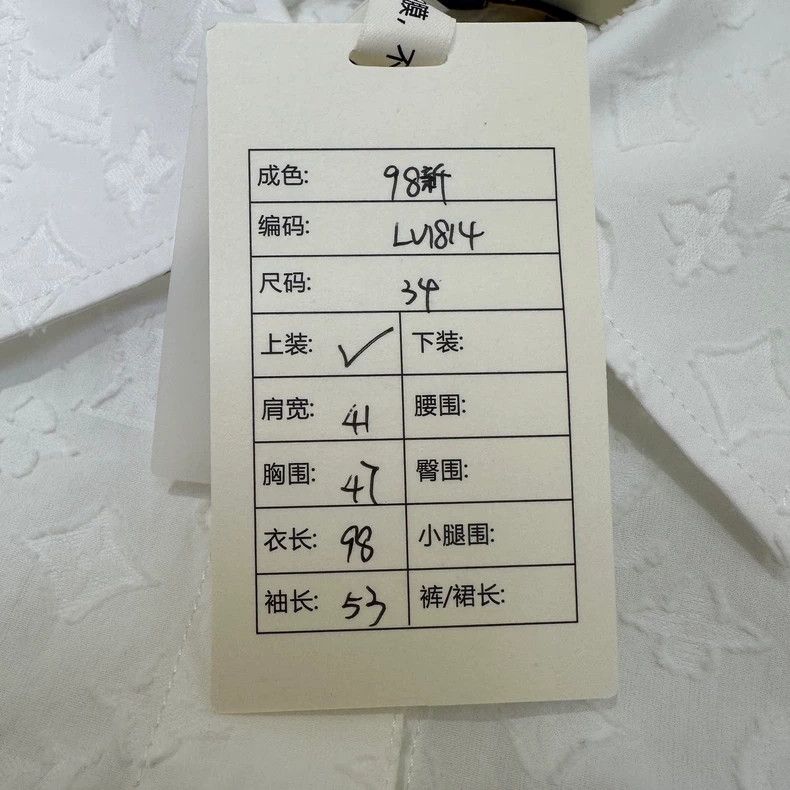 模，不
成色: 98新
编码: LV1814
尺码: 34
上装: ✓ 下装:
肩宽: 41 腰围:
胸围: 47 臀围:
衣长: 98 小腿围:
袖长: 53 裤/裙长: